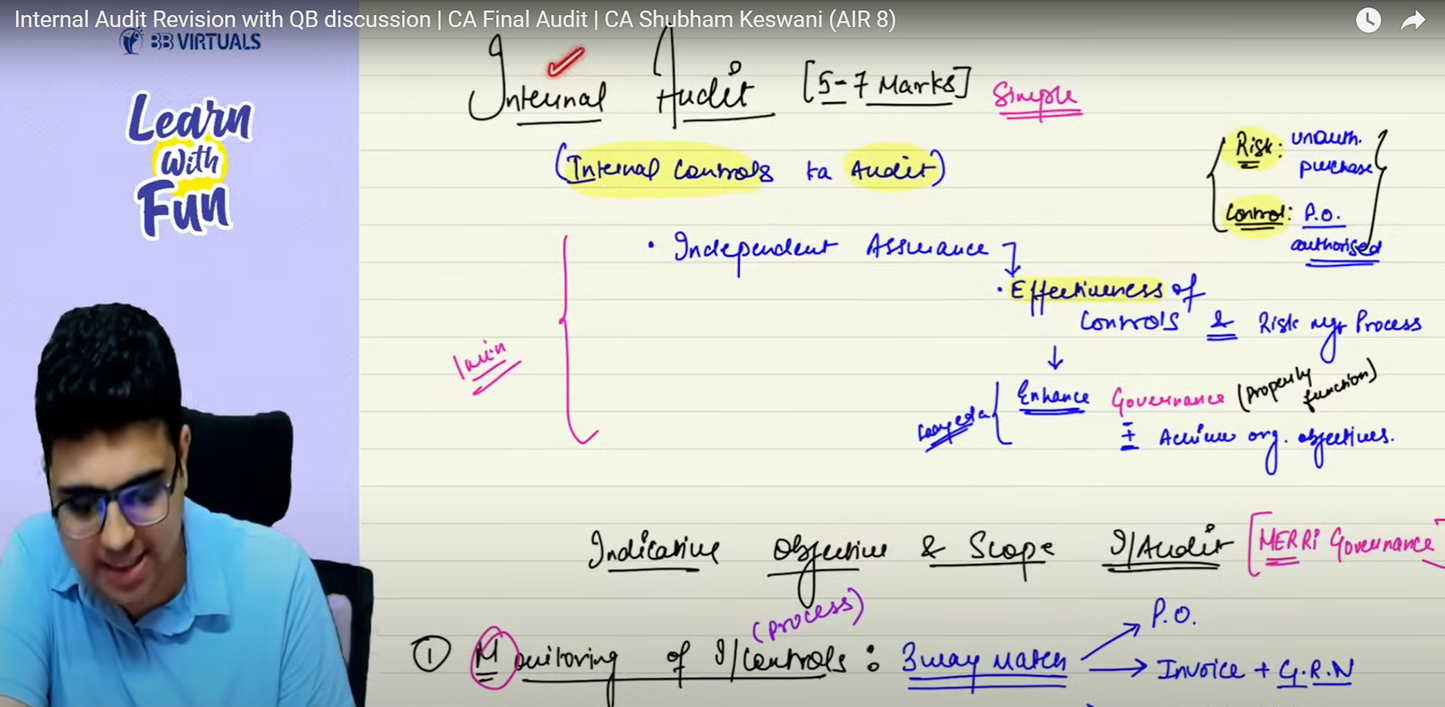 Internal Audit Revision with QB discussion | CA Final Audit | CA Shubham Keswani (AIR 8)
BB VIRTUALS
Learn
with
Fun
Internal Audit [5-7 Marks] Simple
(Internal Controls ka Audit)
Risk: unauth. purchase
Control: P.O. authorised
• Independent Assurance
• Effectiveness of
Controls & Risk mgt Process
1 min
Enhance Governance (properly function)
+ Achieve org. objectives.
Indicative Objective & Scope I/Audit [MERRI Governance
(process)
① Monitoring of I/Controls: 3 way match
P.O.
Invoice + G.R.N